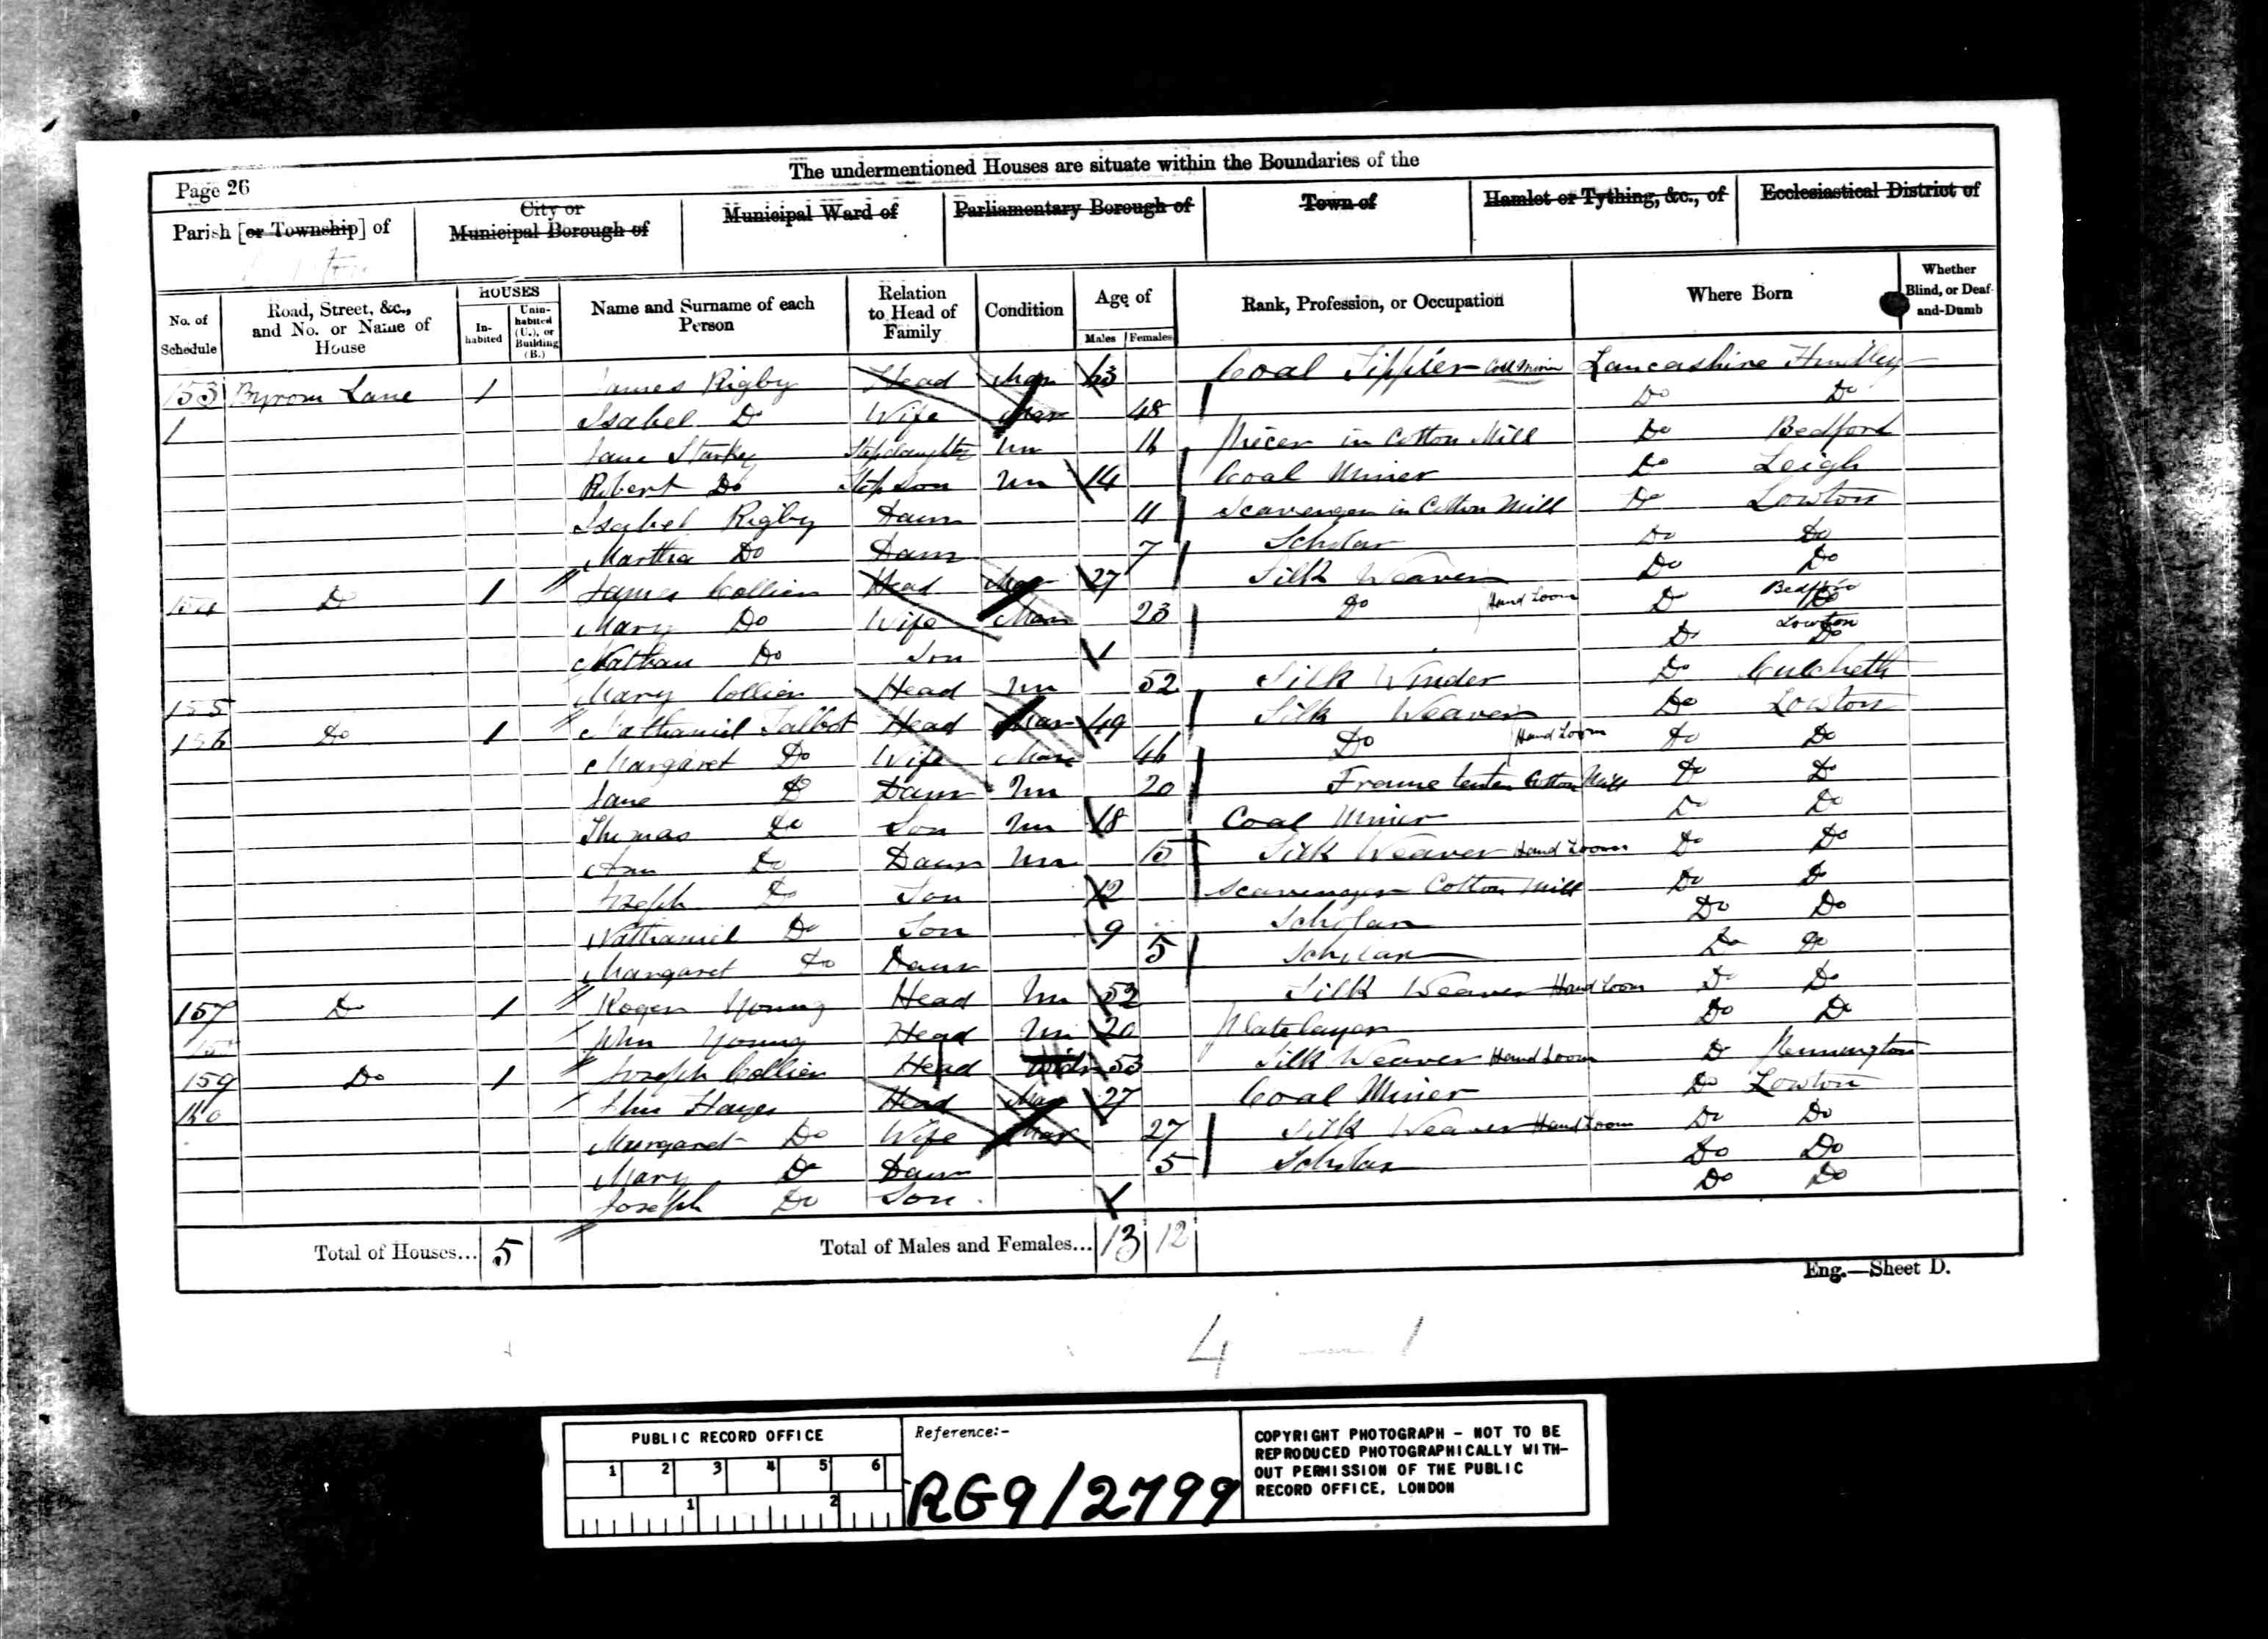 The undermentioned Houses are situate within the Boundaries of the
Page 26
Parish [or Township] of
City or Municipal Borough of
Municipal Ward of
Parliamentary Borough of
Town of
Hamlet or Tything, &c., of
Ecclesiastical District of
No. of Schedule
Road, Street, &c., and No. or Name of House
HOUSES
Inhabited
Uninhabited (U.), or Building (B.)
Name and Surname of each Person
Relation to Head of Family
Condition
Age of
Males
Females
Rank, Profession, or Occupation
Where Born
Whether Blind, or Deaf-and-Dumb
153 Byrom Lane 1 James Rigby Head Mar 53 Coal Lancashire Hindley
Isabel Do Wife Mar 48 Do Do
Jane Starkey Stepdaughter Un 16 Piecer in Cotton Mill Do Bedford
Robert Do Step Son Un 14 Coal Miner Do Leigh
Isabel Rigby Daur 11 Scavenger in Cotton Mill Do Lowton
Martha Do Daur 7 Scholar Do Do
154 Do 1 James Collier Head Mar 27 Silk Weaver Do Do
Mary Do Wife Mar 23 Do Hand Loom Do Bedford
Nathan Do Son 1 Do Lowton
155 Mary Collier Head Un 52 Silk Winder Do Culcheth
156 Do 1 Nathaniel Talbot Head Mar 49 Silk Weaver Do Lowton
Margaret Do Wife Mar 46 Do Hand Loom Do Do
Jane Do Daur Un 20 Frame tenter Cotton Mill Do Do
Thomas Do Son Un 18 Coal Miner Do Do
Ann Do Daur Un 15 Silk Weaver Hand Loom Do Do
Joseph Do Son 12 Scavenger Cotton Mill Do Do
Nathaniel Do Son 9 Scholar Do Do
Margaret Do Daur 5 Scholar Do Do
157 Do 1 Roger Young Head Un 52 Silk Weaver Hand Loom Do Do
John Young Head Un 20 Platelayer Do Do
159 Do 1 Joseph Collier Head Widr 53 Silk Weaver Hand Loom Do Pennington
160 John Hayes Head Mar 27 Coal Miner Do Lowton
Margaret Do Wife Mar 27 Silk Weaver Hand Loom Do Do
Mary Do Daur 5 Scholar Do Do
Joseph Do Son 1 Do Do
Total of Houses... 5
Total of Males and Females... 13 12
Eng.—Sheet D.
4
PUBLIC RECORD OFFICE
1 2 3 4 5 6
1 2
Reference:-
RG9/2799
COPYRIGHT PHOTOGRAPH - NOT TO BE
REPRODUCED PHOTOGRAPHICALLY WITH-
OUT PERMISSION OF THE PUBLIC
RECORD OFFICE, LONDON